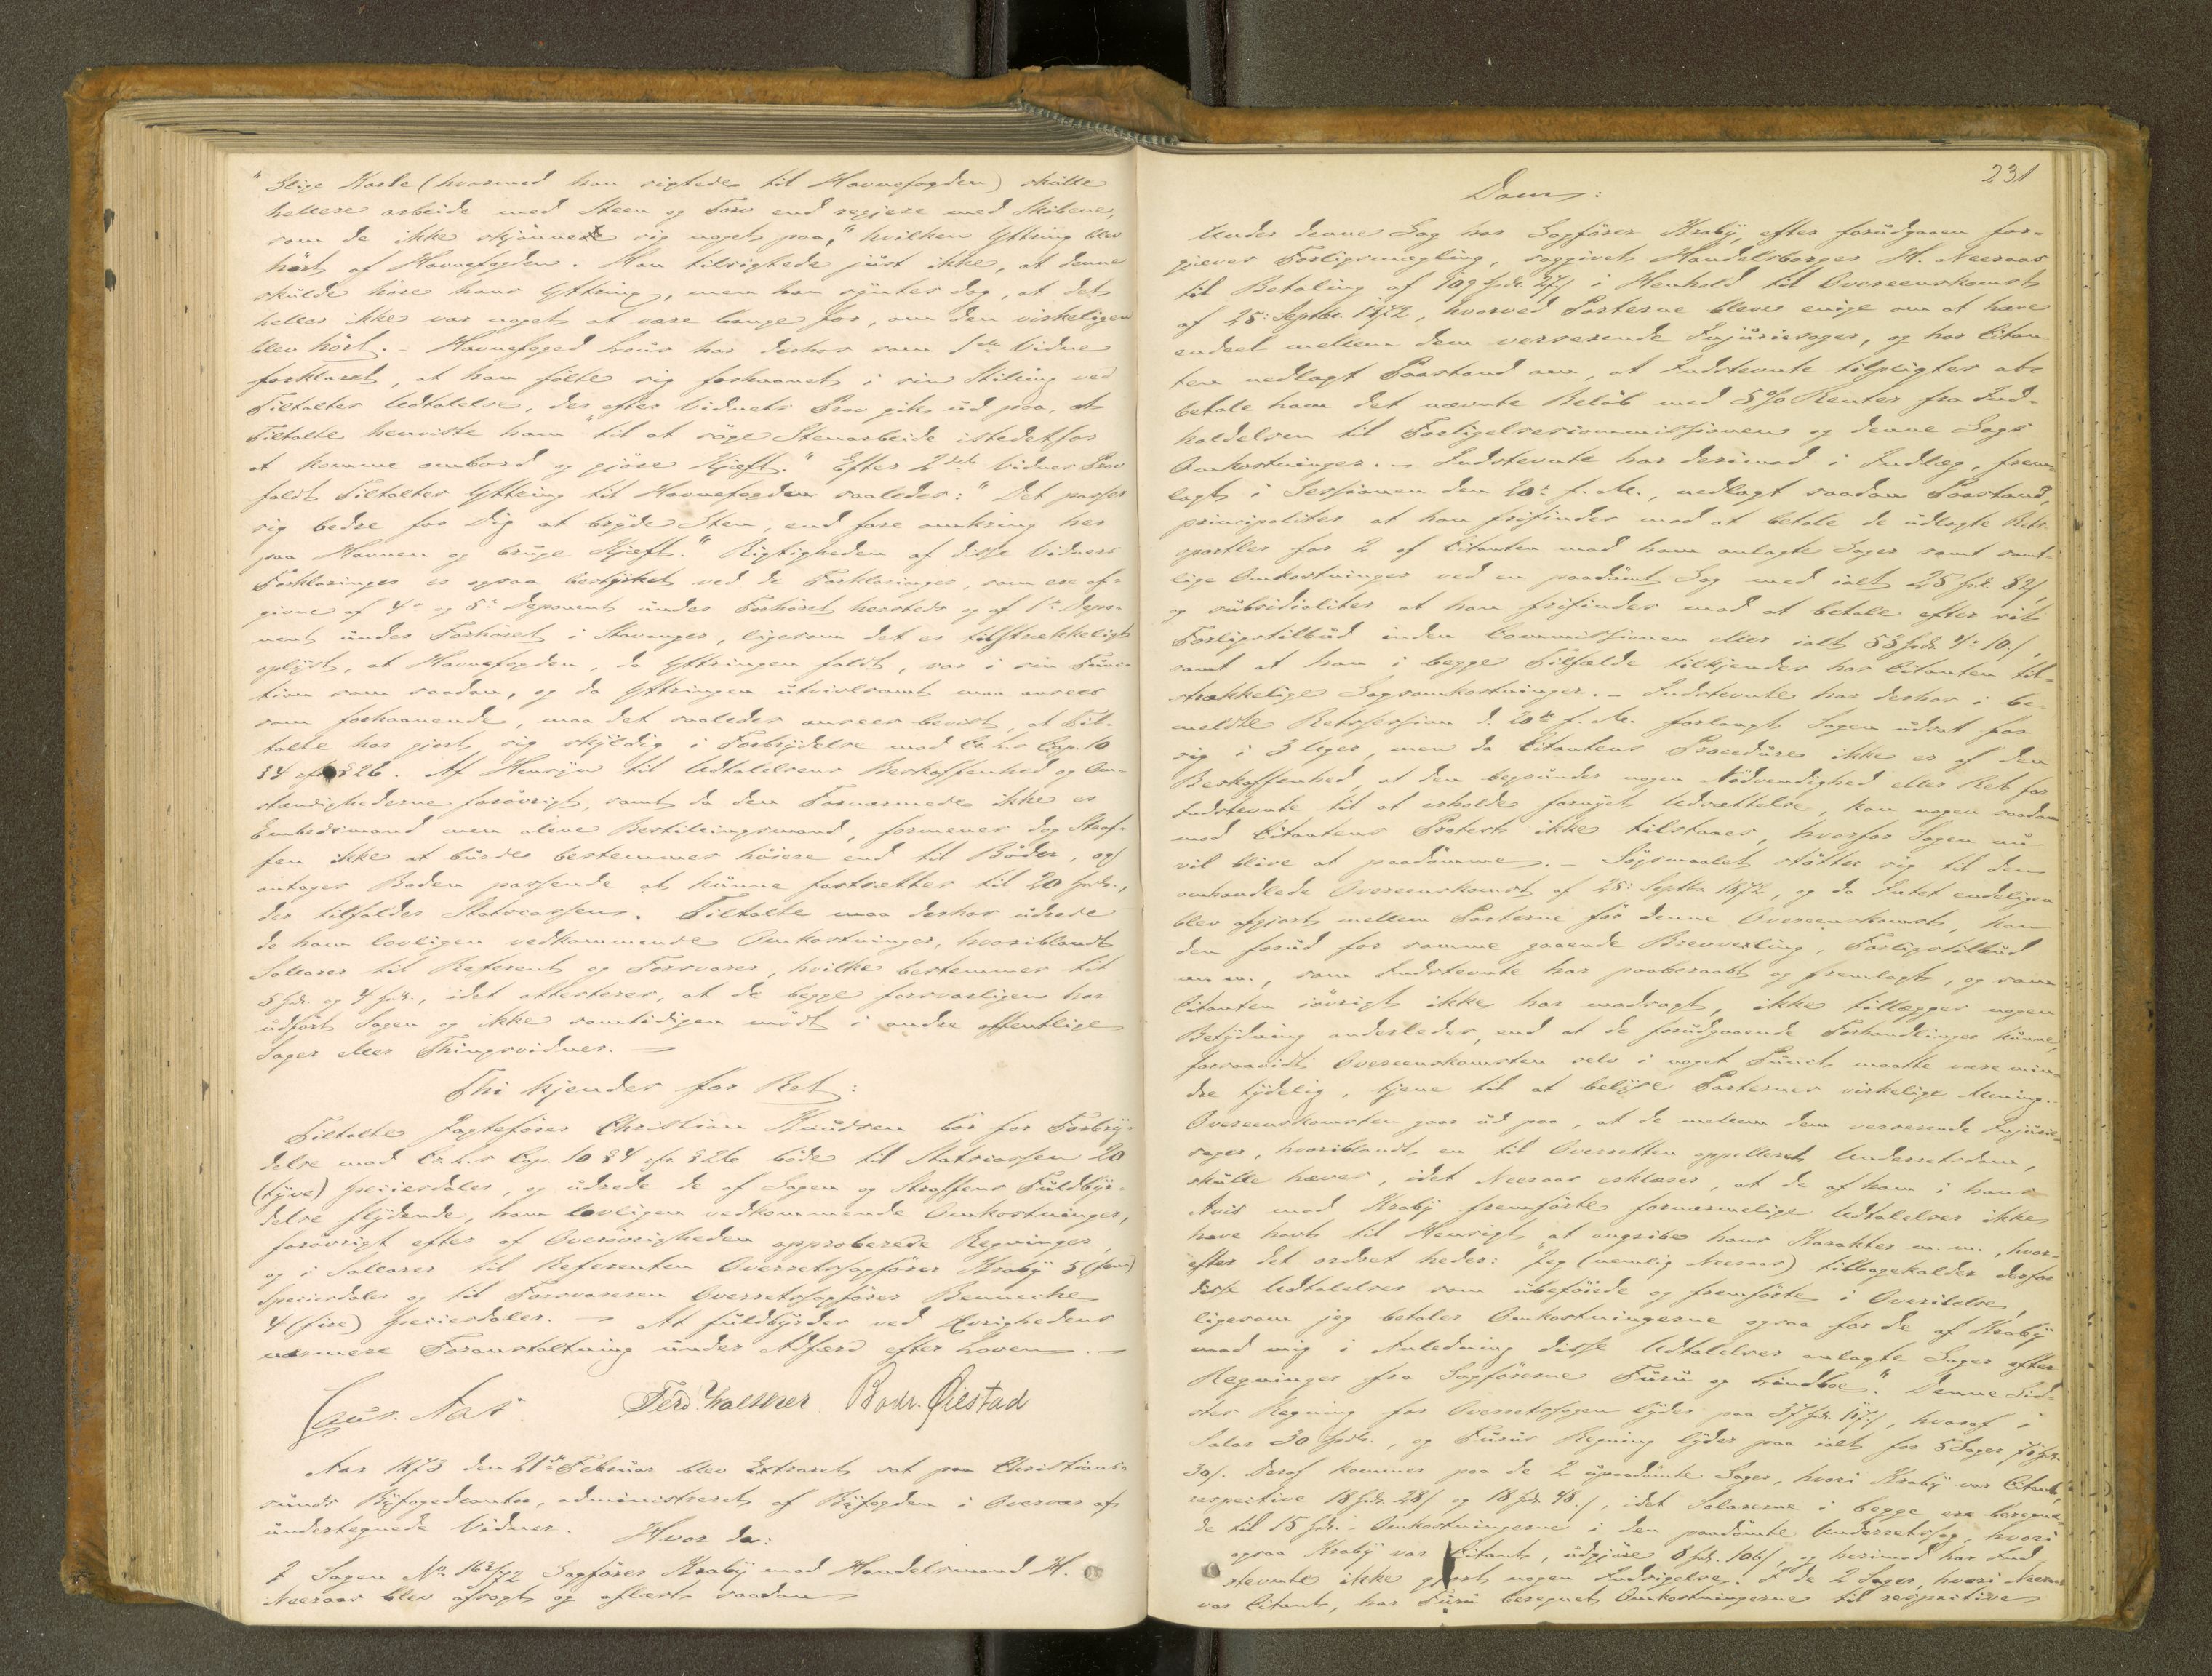 "Slige Karle (hvormed han sigtede til Havnefogden) skulle
hellere arbeide med Steen og Torv end regjere med Skibene,
som de ikke skjønnede sig noget paa," hvilken Yttring blev
hørt af Havnefogden. Han tilsigtede just ikke, at denne
skulde høre hans Yttring, men han syntes dog, at det
heller ikke var noget at være bange for, om den virkeligen
blev hørt. - Havnefoged har derhos som 1ste Vidne
forklaret, at han følte sig forhaanet i sin Stilling ved
Tiltaltes Udtalelse, der efter Vidnets Prov gik ud paa, at
Tiltalte henviste ham "til at søge Stenarbeide istedetfor
at komme ombord og gjøre Kjæft." Efter 2det Vidnes Prov
faldt Tiltaltes Yttring til Havnefogden saaledes: "Det passer
sig bedre for Dig at bryde Sten, end fare omkring her
paa Havnen og bruge Kjæft." Rigtigheden af disse Vidners
Forklaringer er ogsaa bestyrket ved de Forklaringer, som ere af-
givne af 4de og 5te Deponent under Forhøret hersteds og af 1ste Depo-
nent under Forhøret i Stavanger, ligesom det er tilstrækkeligt
oplyst, at Havnefogden, da Yttringen faldt, var i sin Func-
tion som saadan, og da Yttringen utvivlsomt maa ansees
som forhaanende, maa det saaledes ansees bevist, at Til-
talte har gjort sig skyldig i Forbrydelse mod Cr.l.s Cap. 10
§4 cfr. §26. Af Hensyn til Udtalelsens Beskaffenhed og Om-
stændighederne forøvrigt, samt da den Fornærmede ikke er
Embedsmand men alene Bestillingsmand, formenes dog Straf-
fen ikke at burde bestemmes høiere end til Bøder, og
antages Boden passende at kunne fastsættes til 20 Spdlr.,
der tilfalder Statscassen. Tiltalte maa derhos udrede
de ham lovligen vedkommende Omkostninger, hvoriblandt
Sallarer til Referent og Forsvarer, hvilke bestemmes til
5 Spd. og 4 Spd., idet attesteres, at de begge forsvarligen har
udført Sagen og ikke samtidigen mødt i andre offentlige
Sager eller Thingsvidner. -
Thi kjendes for Ret:
Tiltalte Jagtefører Christian Knudsen bør for Forbry-
delse mod Cr.l.s Cap. 10 §4 cfr. §26 bøde til Statscassen 20
(tyve) Speciesdaler, og udrede de af Sagen og Straffens Fuldbyr-
delse flydende, ham lovligen vedkommende Omkostninger,
forøvrigt efter af Overøvrigheden approberede Regninger,
og i Sallarer til Referenten Overretssagfører Kraby 5 (fem)
Speciesdaler og til Forsvareren Overretssagfører Benneche
4 (fire) Speciesdaler. - At fuldbyrdes ved Øvrighedens
nærmere Foranstaltning under Adfærd efter Loven. -
Ferd. Bodr. Øilestad
Aar 1873 den 21de Februar blev Extraret sat paa Christian-
sunds Byfogedcontor, administreret af Byfogden i Overvær af
undertegnede Vidner. Hvor da:
I Sagen No 163/72 Sagfører Kraby mod Handelsmand H.
Neeraas blev afsagt og oplæst saadan
231
Dom:
Under denne Sag har Sagfører Kraby, efter forudgaaen for-
gjæves Forligsmægling, saggivet Handelsborger H. Neeraas
til Betaling af 109 Spd. 27 s i Henhold til Overeenskomst
af 25de Septbr. 1872, hvorved Parterne bleve enige om at hæve
endeel mellem dem verserende Injuriesager, og har Citan-
ten nedlagt Paastand om, at Indstevnte tilpligtes at
betale ham det nævnte Beløb med 5 % Renter fra Ind-
kaldelsen til Forligelsescommissionen og denne Sags
Omkostninger. - Indstevnte har derimod i Indlæg, frem-
lagt i Sessionen den 20de f. M., nedlagt saadan Paastand,
principaliter at han frifindes mod at betale de udlagte Rets-
sportler for 2 af Citanten mod ham anlagte Sager samt samt-
lige Omkostninger ved en paadømt Sag med ialt 25 Spd. 82 s,
og subsidialiter at han frifindes mod at betale efter sit
Forligstilbud inden Commissionen eller ialt 53 Spd. 4 10 s,
samt at han i begge Tilfælde tilkjendes hos Citanten til-
strækkelige Sagsomkostninger. - Indstevnte har derhos i be-
meldte Retssession d. 20de f. M. forlangt Sagen udsat for
sig i 3 Uger, men da Citantens Procedure ikke er af den
Beskaffenhed, at den begrunder nogen Nødvendighed eller Ret for
Indstevnte til at erholde fornyet Udsættelse, kan nogen saadan
mod Citantens Protest ikke tilstaaes, hvorfor Sagen nu
vil blive at paadømme. - Søgsmaalet støtter sig til den
omhandlede Overeenskomst af 25de Septbr. 1872, og da Intet endeligen
blev afgjort mellem Parterne før denne Overeenskomst, kan
den forud for samme gaaende Brevvexling, Forligstilbud
m. m., som Indstevnte har paaberaabt og fremlagt, og som
Citanten iøvrigt ikke har modsagt, ikke tillægges nogen
Betydning anderledes, end at de forudgaaende Forhandlinger kunne,
forsaavidt Overeenskomsten selv i noget Punct maatte være min-
dre tydelig, tjene til at belyse Parternes virkelige Mening. -
Overeenskomsten gaar ud paa, at de mellem dem verserende Injurie-
sager, hvoriblandt en til Overretten appelleret Underretsdom,
skulle hæves, idet Neeraas erklærer, at de af ham i hans
Avis mod Kraby fremførte fornærmelige Udtalelser ikke
have havt til Hensigt at angribe hans Karakter m. m., hvor-
efter det ordret heder: "Jeg (nemlig Neeraas) tilbagekalder derfor
disse Udtalelser som ubeføiede og fremførte i Overilelse,
ligesom jeg betaler Omkostningerne ogsaa for de af Kraby
mod mig i Anledning disse Udtalelser anlagte Sager efter
Regninger fra Sagførerne Furu og Lindboe." Denne Sid-
stes Regning for Overretssagen lyder paa 37 Spd. 117 s, hvoraf i
Salar 30 Spdlr., og Furus Regning lyder paa ialt for 5 Sager
30 s. Deraf kommer paa de 2 upaadømte Sager, hvori Kraby var Citant,
respective 18 Spd. 28 s og 18 Spd. 48 s, idet Salarerne i begge ere beregne-
de til 15 Spd. - Omkostningerne i den paadømte Underretssag, hvori
ogsaa Kraby var Citant, udgjøre 8 Spd. 106 s, og herimod har Ind-
stevnte ikke gjort nogen Indsigelse. I de 2 Sager, hvori Neeraas
var Citant, har Furu beregnet Omkostningerne til respective